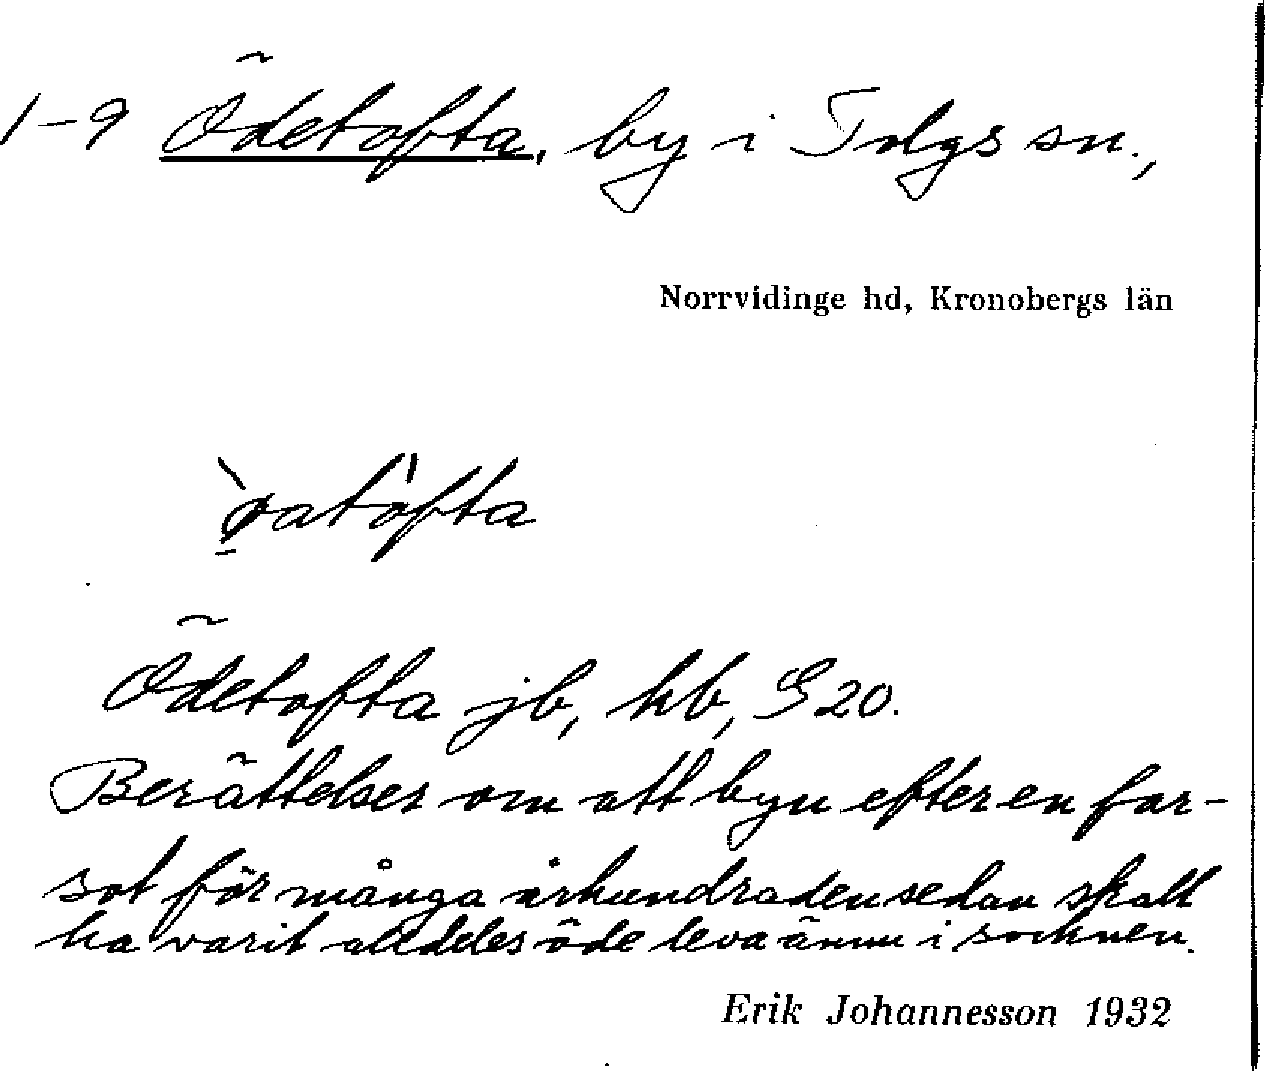 1-9 Ödetofta, by i Tolgs sn.,
Norrvidinge hd, Kronobergs län
Ödetofta jb, hb, G 20.
Berättelser om att byn efter en far-
sot för många århundraden sedan skall
ha varit alldeles öde leva ännu i socknen.
Erik Johannesson 1932